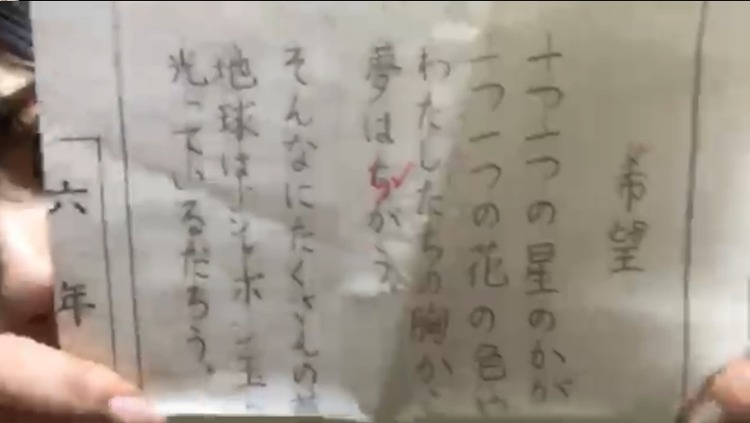 希望
一つ一つの星のかが
一つ一つの花の色や
わたしたちの胸か
夢はちがう。
そんなにたくさんの
地球はシャボン玉
光っているだろう。
六年